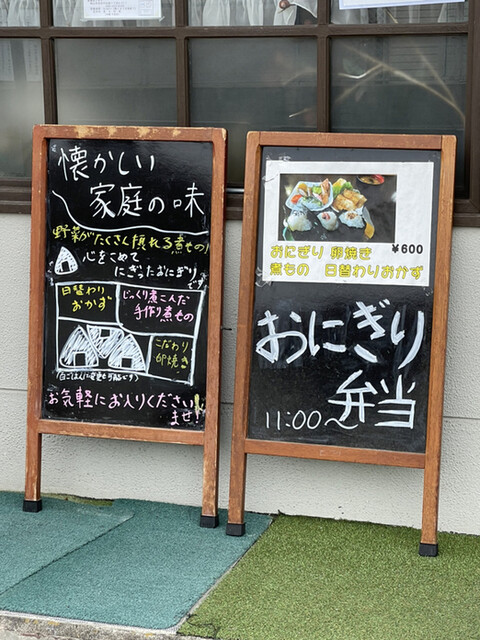 懐かしい
家庭の味
野菜がたくさん摂れる煮もの!
心をこめて
にぎったおにぎりです
日替わり
おかず
じっくり煮こんだ
手作り煮もの
こだわり
卵焼き
(白ごはんに変更も可能です)
お気軽にお入りください
ませ!
おにぎり 卵焼き ¥600
煮もの 日替わりおかず
おにぎり
弁当
11:00〜